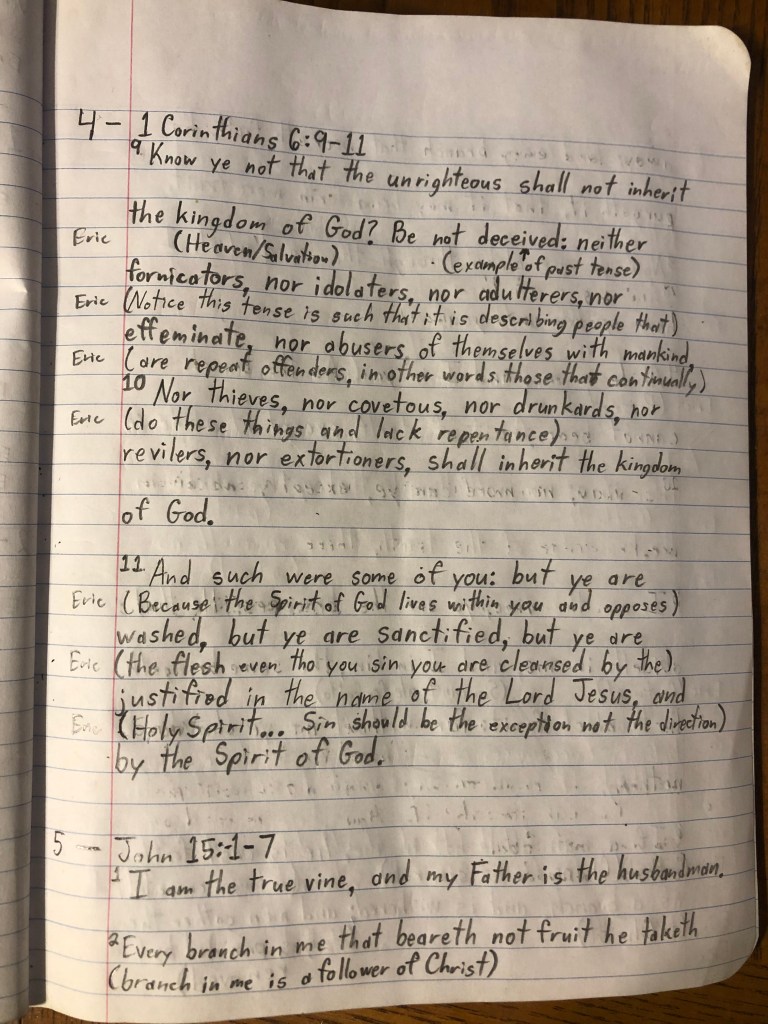 4 - 1 Corinthians 6:9-11
9 Know ye not that the unrighteous shall not inherit
the kingdom of God? Be not deceived: neither
Eric (Heaven/Salvation) (example↑of past tense)
fornicators, nor idolaters, nor adulterers, nor
Eric (Notice this tense is such that it is describing people that)
effeminate, nor abusers of themselves with mankind,
Eric (are repeat offenders, in other words those that continually)
10 Nor thieves, nor covetous, nor drunkards, nor
Eric (do these things and lack repentance)
revilers, nor extortioners, shall inherit the kingdom
of God.
11 And such were some of you: but ye are
Eric (Because the Spirit of God lives within you and opposes)
washed, but ye are sanctified, but ye are
Eric (the flesh even tho you sin you are cleansed by the)
justified in the name of the Lord Jesus, and
Eric (Holy Spirit... Sin should be the exception not the direction)
by the Spirit of God.
5 - John 15:1-7
1 I am the true vine, and my Father is the husbandman.
2 Every branch in me that beareth not fruit he taketh
(branch in me is a follower of Christ)